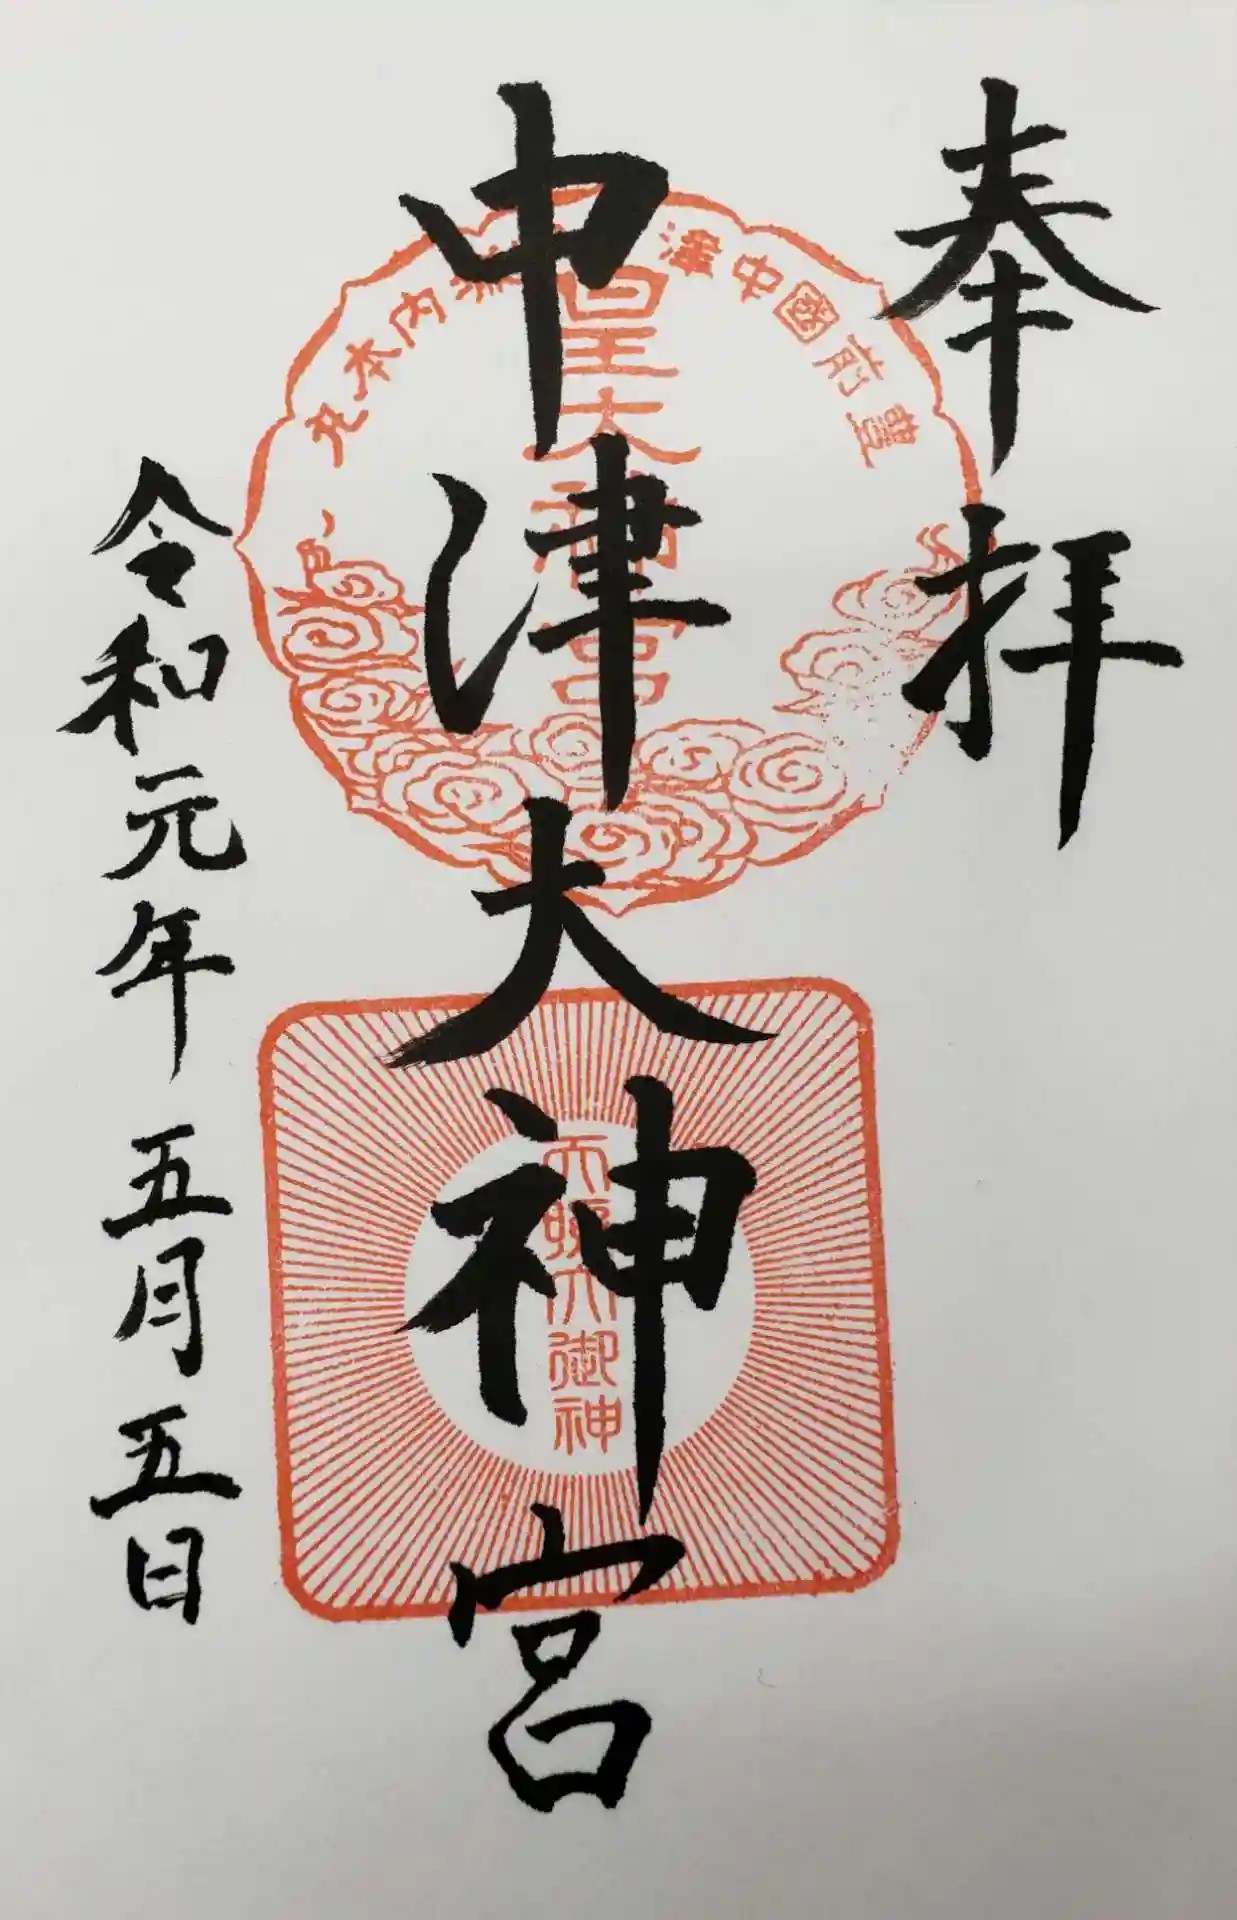 奉拝
豊前國中津
城内本丸
皇大神宮
中津大神宮
天照大御神
令和元年 五月五日